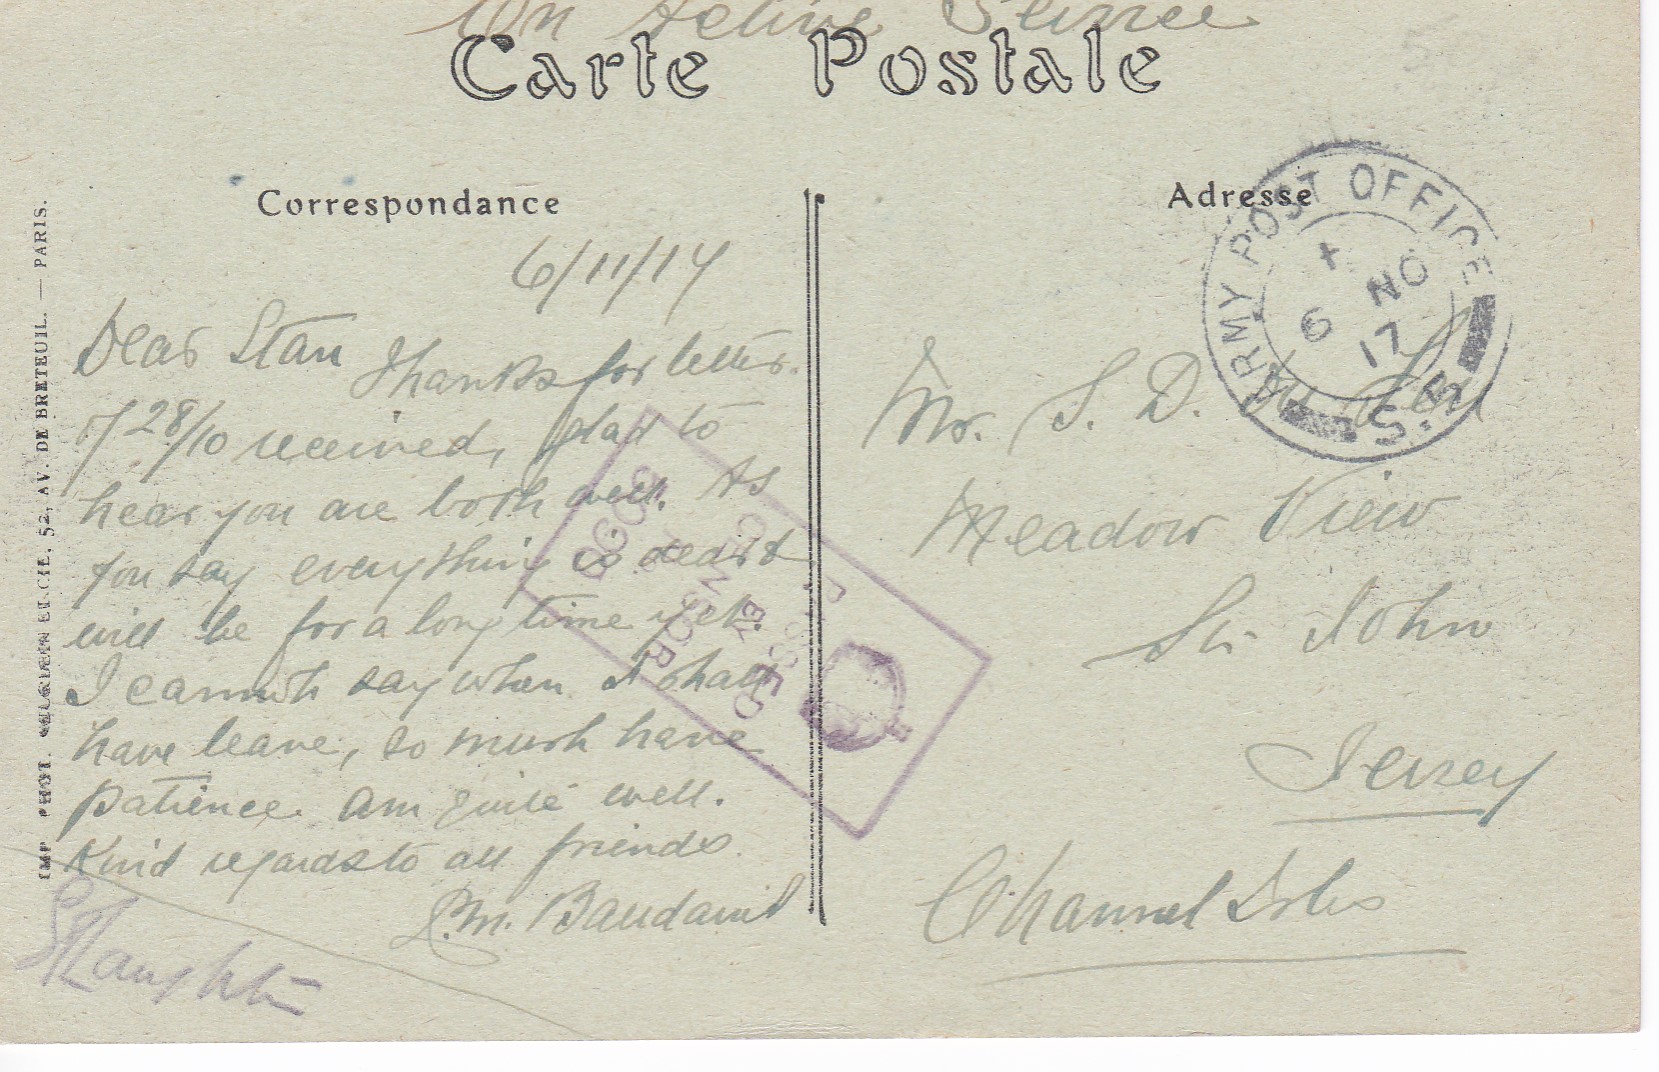 On Active Service
Carte Postale
Correspondance
Adresse
ARMY POST OFFICE
S.
6 NO
17
6/11/17
Dear Stan
Thanks for letter
of 28/10 received, glad to
hear you are both well. As
you say everything is dear &
will be for a long time yet.
I cannot say when I shall
have leave, so must have
patience. Am quite well.
Kind regards to all friends.
Mr. S. D.
Meadow View
St. John
Jersey
Channel Isles
PASSED
BY
CENSOR
IMP. PHOT. 52, AV. DE BRETEUIL. — PARIS.